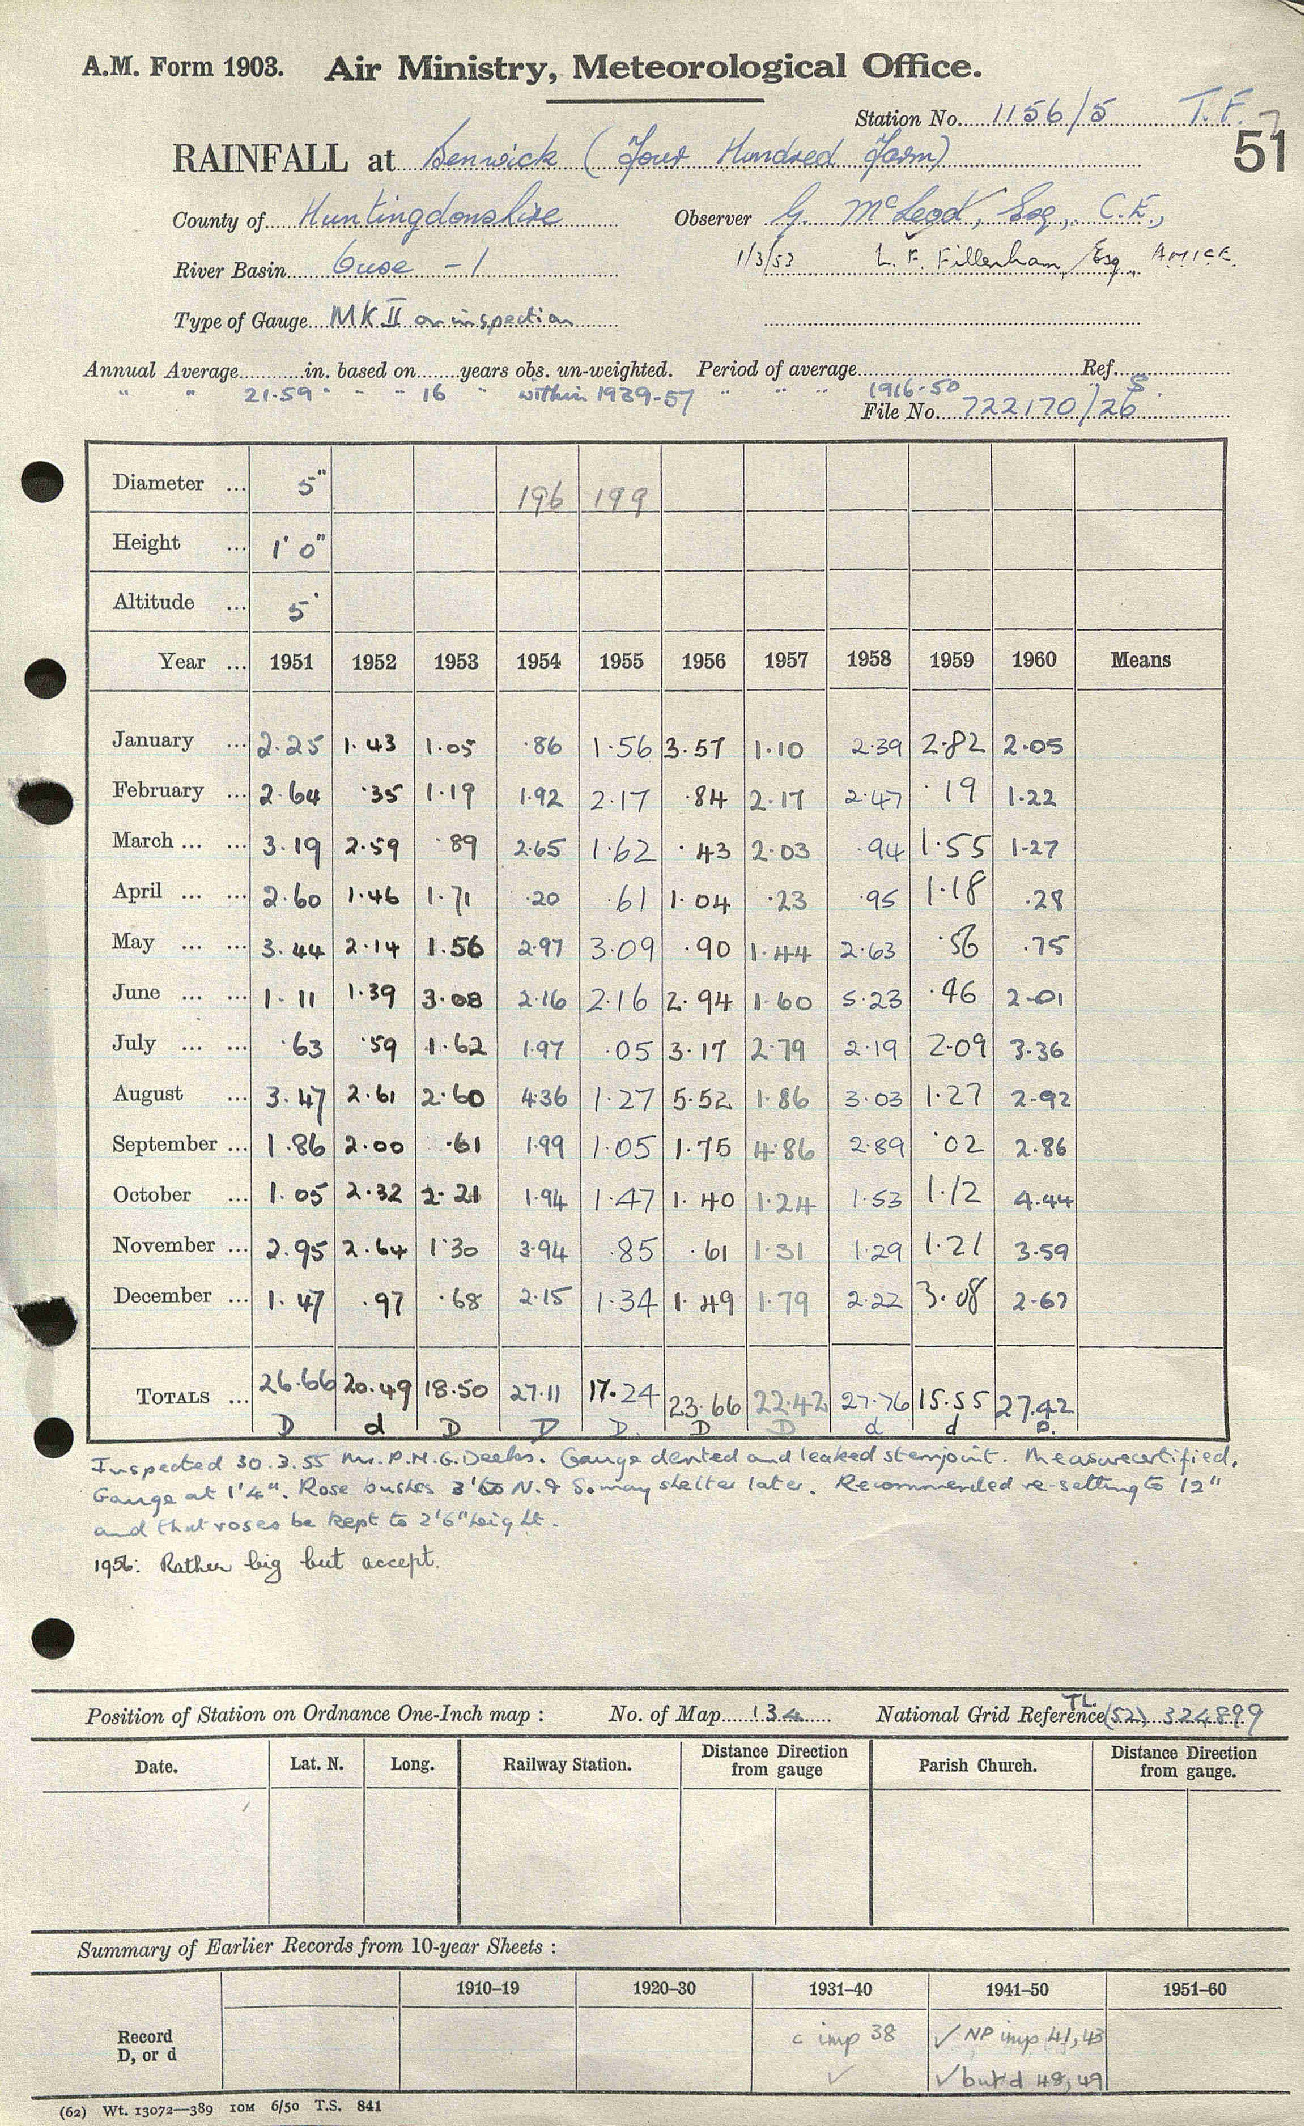 A.M. Form 1903. Air Ministry, Meteorological Office.
Station No. 1156/5 T.F. 7
51
RAINFALL at Benwick (Four Hundred Farm)
County of Huntingdonshire Observer G. McLeod, Esq., C.E.,
River Basin Ouse - 1 1/3/53 L. F. Fillenham, Esq A.M.I.C.E.
Type of Gauge MK II on inspection
Annual Average in. based on years obs. un-weighted. Period of average Ref.
" " 21.59 " " " 16 " within 1939-57 " " " 1916-50 S.
File No. 722170/26
Diameter ... 5" 196 199
Height ... 1' 0"
Altitude ... 5'
Year ... 1951 1952 1953 1954 1955 1956 1957 1958 1959 1960 Means
January ... 2.25 1.43 1.05 .86 1.56 3.57 1.10 2.39 2.82 2.05
February ... 2.64 .35 1.19 1.92 2.17 .84 2.17 2.47 .19 1.22
March ... ... 3.19 2.59 .89 2.65 1.62 .43 2.03 .94 1.55 1.27
April ... ... 2.60 1.46 1.71 .20 .61 1.04 .23 .95 1.18 .28
May ... ... 3.44 2.14 1.56 2.97 3.09 .90 1.44 2.63 .56 .75
June ... ... 1.11 1.39 3.08 2.16 2.16 2.94 1.60 5.23 .46 2.01
July ... ... .63 .59 1.62 1.97 .05 3.17 2.79 2.19 2.09 3.36
August ... 3.47 2.61 2.60 4.36 1.27 5.52 1.86 3.03 1.27 2.92
September ... 1.86 2.00 .61 1.99 1.05 1.75 4.86 2.89 .02 2.86
October ... 1.05 2.32 2.21 1.94 1.47 1.40 1.24 1.53 1.12 4.44
November ... 2.95 2.64 1.30 3.94 .85 .61 1.31 1.29 1.21 3.59
December ... 1.47 .97 .68 2.15 1.34 1.49 1.79 2.22 3.08 2.67
TOTALS ... 26.66 20.49 18.50 27.11 17.24 23.66 22.42 27.76 15.55 27.42
D d D D D. D D d d D.
Inspected 30.3.55 Mr. P.N.G. Deeks. Gauge dented and leaked stemjoint. Measure certified.
Gauge at 1'4". Rose bushes 3' to N.& S. may shelter later. Recommended re-setting to 12"
and that roses be kept to 2'6" height.
1956: Rather big but accept.
Position of Station on Ordnance One-Inch map : No. of Map 134 National Grid Reference TL (52) 324899
Date. Lat. N. Long. Railway Station. Distance Direction from gauge Parish Church. Distance Direction from gauge.
Summary of Earlier Records from 10-year Sheets :
1910–19 1920–30 1931–40 1941–50 1951–60
Record c imp 38 ✓ NP imp 41, 43
D, or d ✓ ✓ but d 48, 49
(62) Wt. 13072—389 10M 6/50 T.S. 841